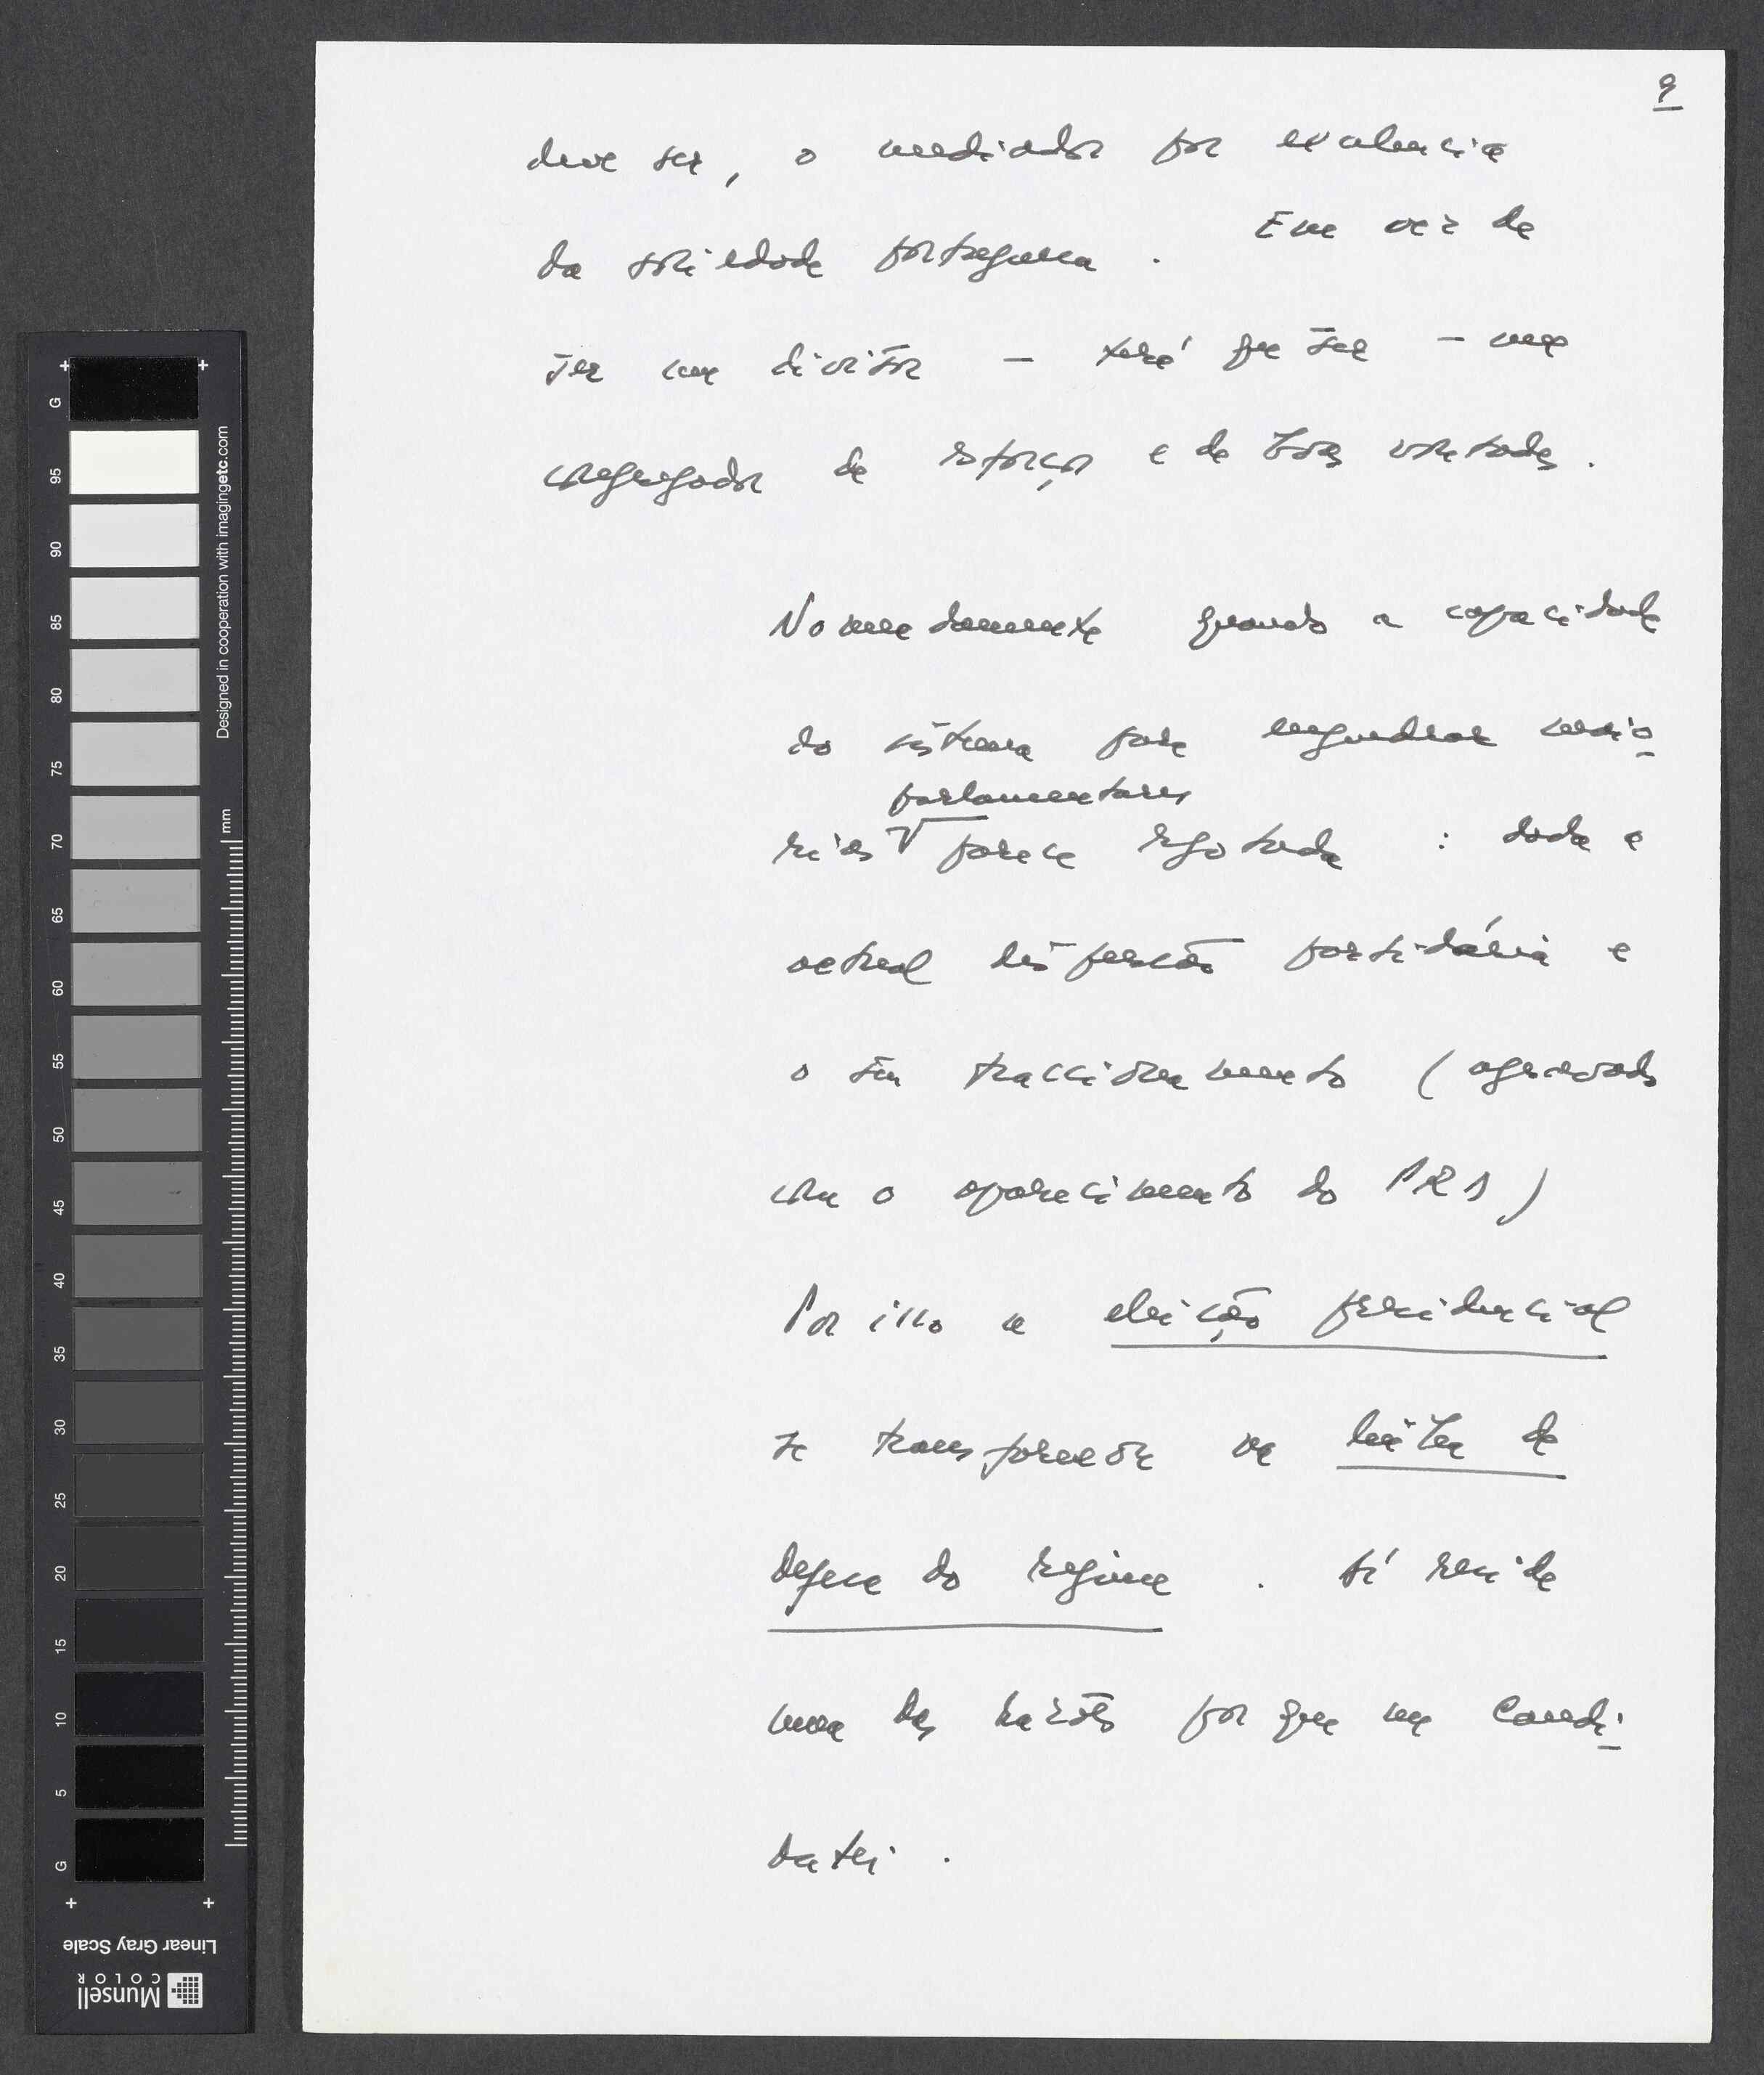 9
deve ser, o mediador por excelência
da sociedade portuguesa. Em vez de
ser um divisor – terá que ser – um
congregador de esforços e de boas vontades.
Nomeadamente quando a capacidade
do sistema para engendrar maio
parlamentares
rias parece esgotada : dada a
actual dispersão partidária e
o seu fraccionamento (agravado
com o aparecimento do PRD)
Por isso a eleição presidencial
se transformou na
defesa do regime. Aí reside
uma das razões por que me Candi
datei.
G
95
90
85
80
75
70
65
60
55
50
45
40
35
30
25
20
15
10
5
G
mm
Designed in cooperation with imagingetc.com
Linear Gray Scale
Munsell
COLOR